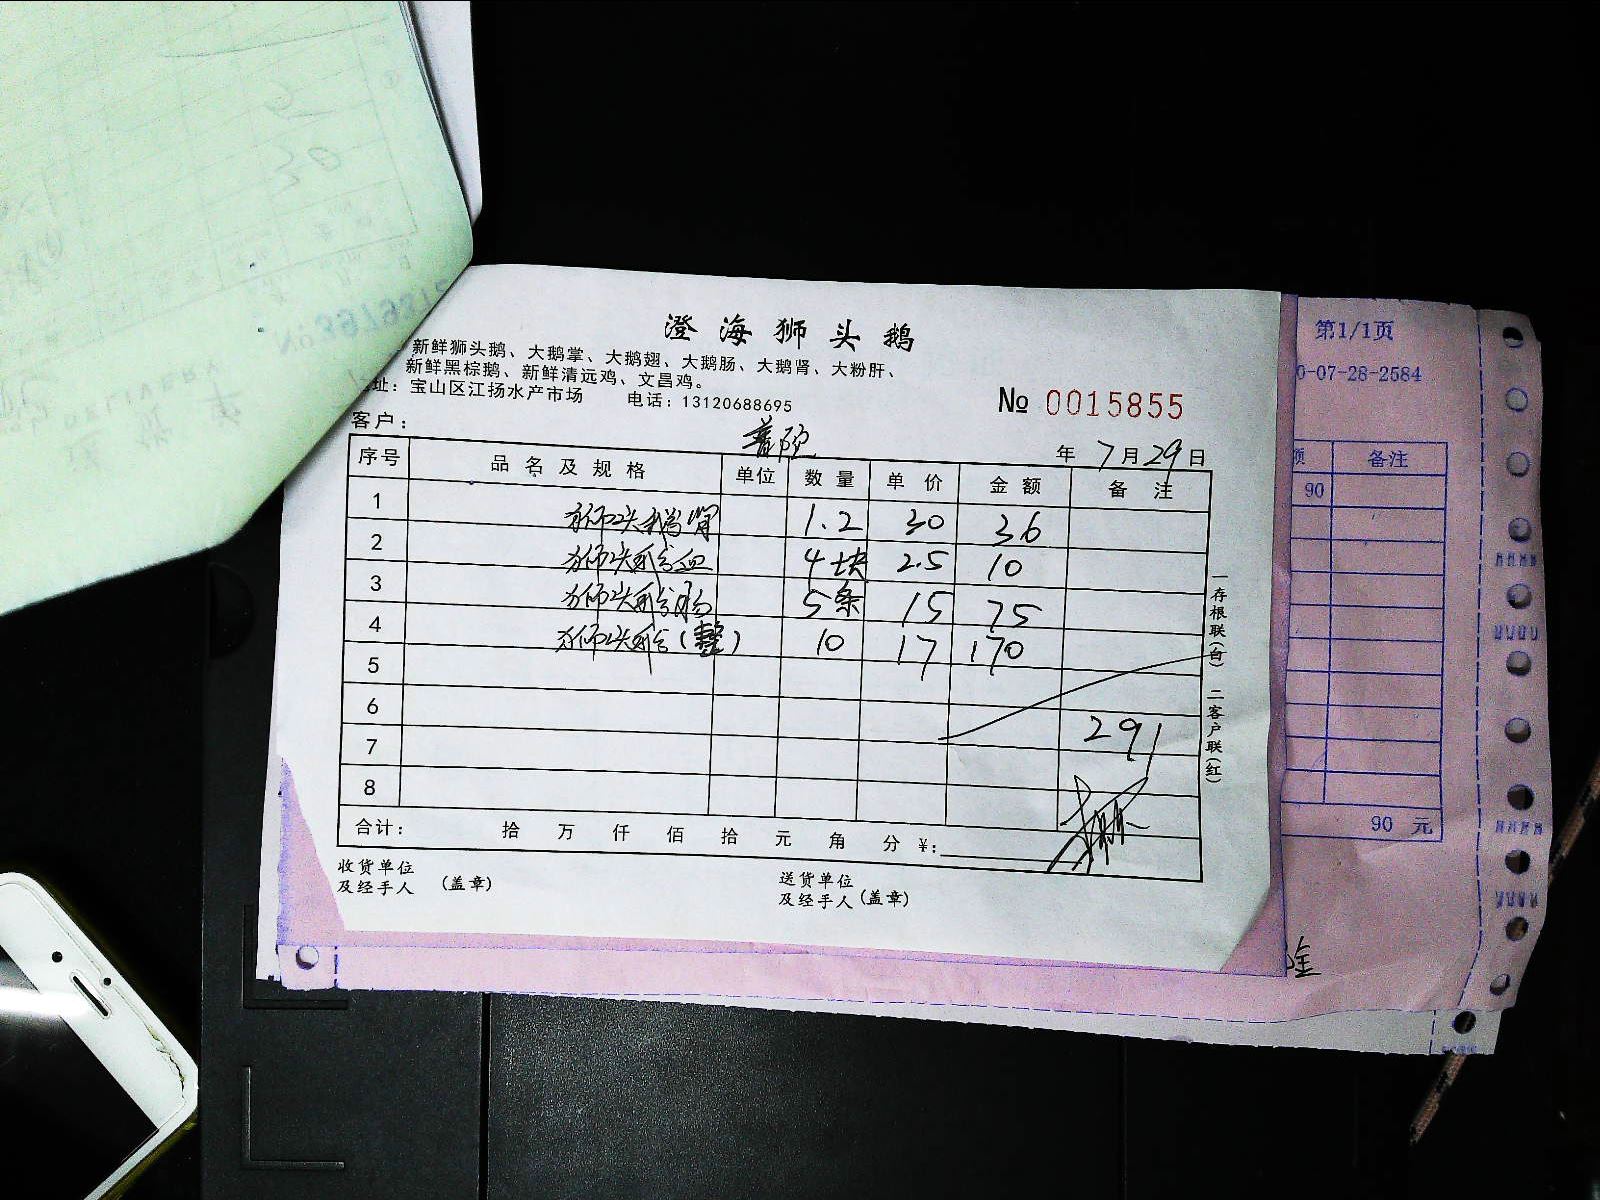 澄海狮头鹅
新鲜狮头鹅、大鹅掌、大鹅翅、大鹅肠、大鹅肾、大粉肝、
新鲜黑棕鹅、新鲜清远鸡、文昌鸡。
址：宝山区江扬水产市场 电话：13120688695
№ 0015855
客户：
年 7月29日
序号 品名及规格 单位 数量 单价 金额 备注
1 狮头鹅肾 1.2 30 36
2 狮头鹅血 4块 2.5 10
3 狮头鹅肠 5条 15 75
4 狮头鹅(整) 10 17 170
5
6 291
7
8
合计： 拾 万 仟 佰 拾 元 角 分 ¥:
收货单位
及经手人 (盖章)
送货单位
及经手人 (盖章)
一存根联(白) 二客户联(红)
第1/1页
0-07-28-2584
额 备注
90
90 元